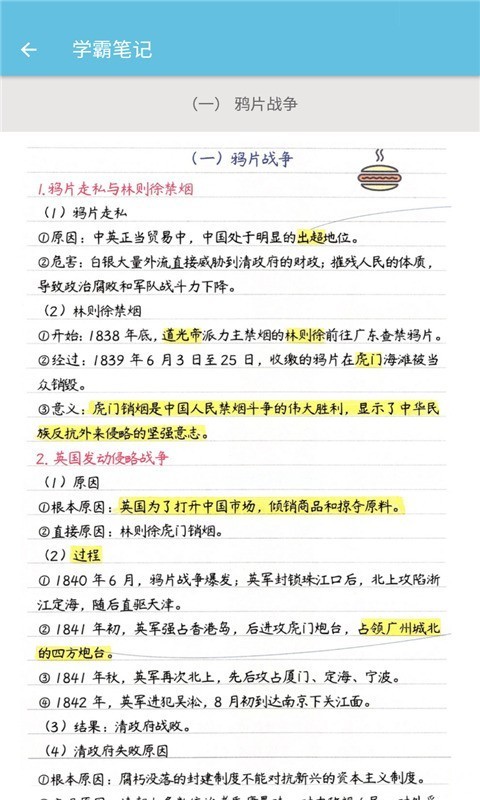 学霸笔记
（一） 鸦片战争
（一）鸦片战争
1.鸦片走私与林则徐禁烟
（1）鸦片走私
①原因：中英正当贸易中，中国处于明显的出超地位。
②危害：白银大量外流直接威胁到清政府的财政；摧残人民的体质，
导致政治腐败和军队战斗力下降。
（2）林则徐禁烟
①开始：1838 年底，道光帝派力主禁烟的林则徐前往广东查禁鸦片。
②经过：1839 年 6 月 3 日至 25 日，收缴的鸦片在虎门海滩被当
众销毁。
③意义：虎门销烟是中国人民禁烟斗争的伟大胜利，显示了中华民
族反抗外来侵略的坚强意志。
2. 英国发动侵略战争
（1）原因
①根本原因：英国为了打开中国市场，倾销商品和掠夺原料。
②直接原因：林则徐虎门销烟。
（2）过程
① 1840 年 6 月，鸦片战争爆发；英军封锁珠江口后，北上攻陷浙
江定海，随后直驱天津。
② 1841 年初，英军强占香港岛，后进攻虎门炮台，占领广州城北
的四方炮台。
③ 1841 年秋，英军再次北上，先后攻占厦门、定海、宁波。
④ 1842 年，英军进犯吴淞，8 月初到达南京下关江面。
（3）结果：清政府战败。
（4）清政府失败原因
①根本原因：腐朽没落的封建制度不能对抗新兴的资本主义制度。